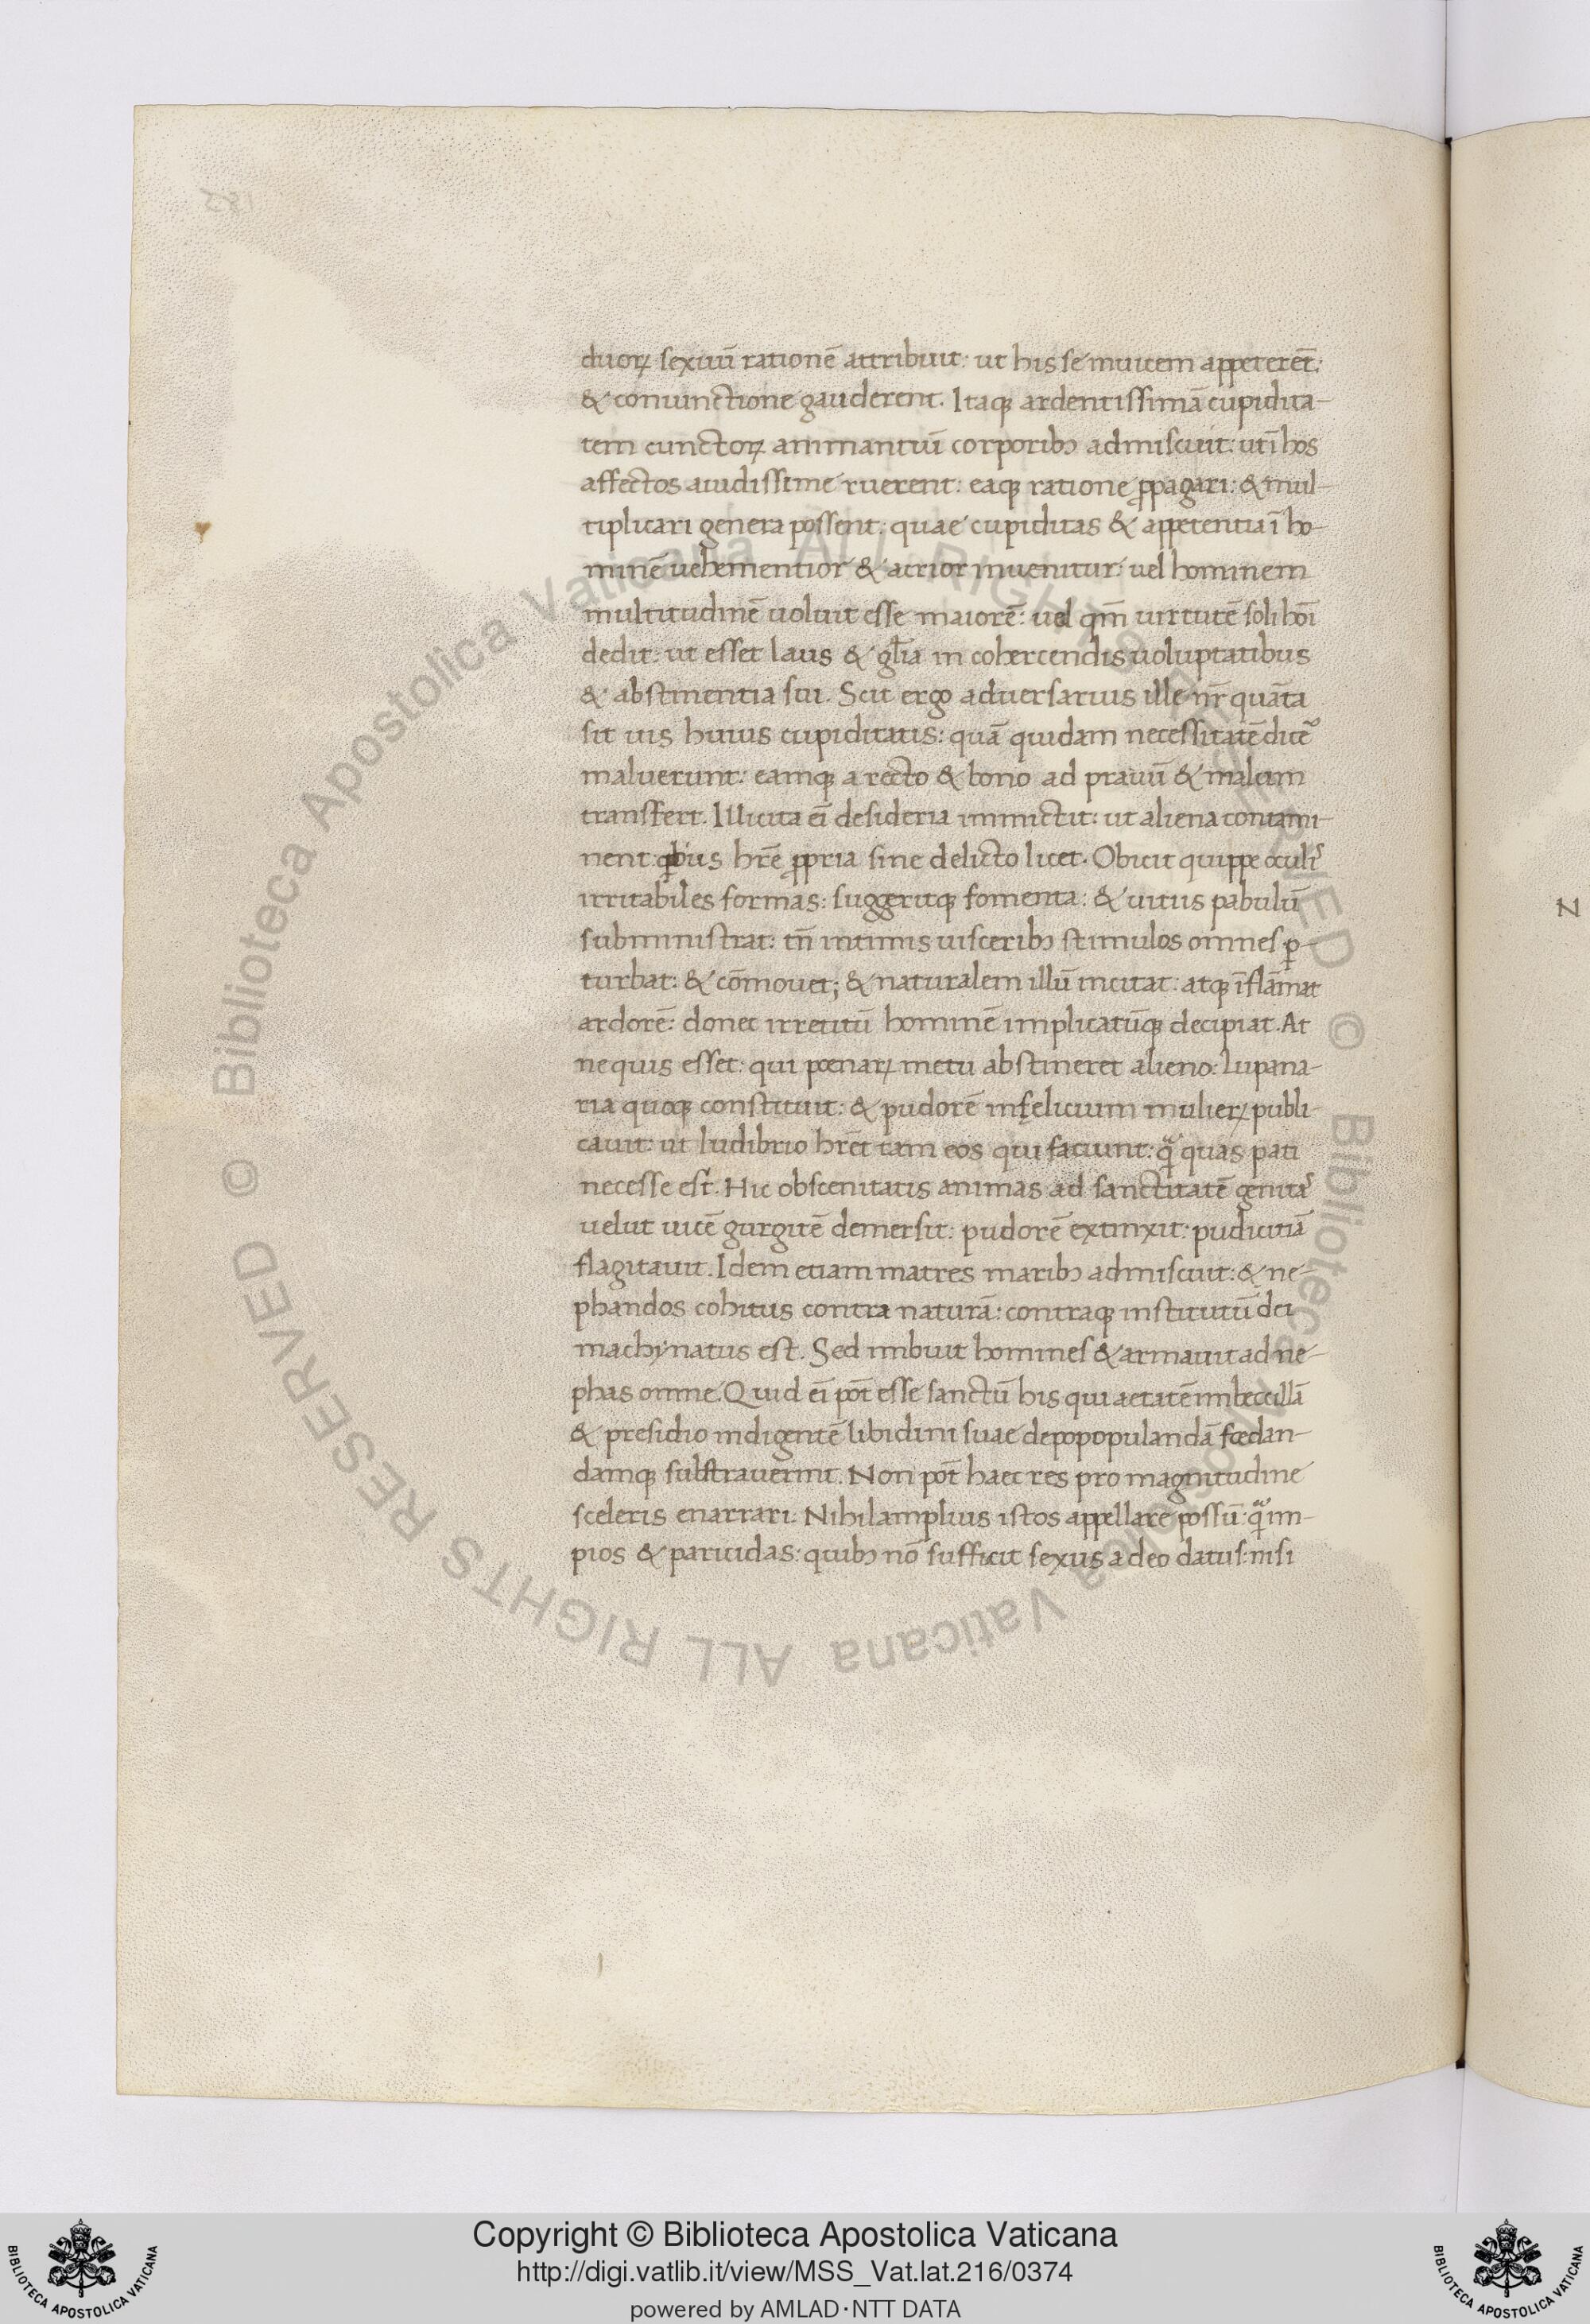 duoꝝ sexuū rationē attribuit: ut his se inuicem appeterēt:
& coniunctione gauderent. Itaqꝫ ardentissimā cupidita-
tem cunctoꝝ animantiū corporibꝰ admiscuit: ut ī hos
affectos auidissime ruerent: eaqꝫ ratione ꝓpagari: & mul-
tiplicari genera possent: quae cupiditas & appetentia ī ho-
minē uehementior & acrior inuenitur: uel hominem
multitudinē uoluit esse maiorē: uel qm̄ uirtutē soli hoī
dedit: ut esset laus & gl̄ia in cohercendis uoluptatibus
& abstinentia sui. Scit ergo aduersarius ille nr̄ quāta
sit uis huius cupiditatis: quā quidam necessitatē dicē
maluerunt: eamqꝫ a recto & bono ad prauū & malum
transfert. Illicita eī desideria inmictit: ut aliena contami-
nent: qbus hr̄e ꝓpria sine delicto licet. Obicit quippe oculis
irritabiles formas: suggeritqꝫ fomenta: & uitiis pabulū
subministrat: tn̄ intimis uisceribꝰ stimulos omnes ꝑ-
turbat: & cōmouet; & naturalem illū incitat: atqꝫ īflāmat
ardorē: donec irretitū hominē implicatūqꝫ decipiat. At
ne quis esset: qui poenaꝝ metu abstineret alieno: Lupana-
ria quoqꝫ constituit: & pudorē infelicium mulieꝝ publi-
cauit: ut ludibrio hr̄et tam eos qui faciunt: q̄ quas pati
necesse est. Hic obscenitatis animas ad sanctitatē genitas
uelut uicē gurgitē demersit: pudorē extinxit: pudicitiā
flagitauit. Idem etiam matres maribꝰ admiscuit: & ne-
phandos cohitus contra naturā: contraqꝫ institutū dei
machynatus est. Sed imbuit homines & armauit ad ne-
phas omne. Quid eī pōt esse sanctū his qui aetatē imbecillā
& presidio indigentē libidini suae depopopulandā foedan-
damqꝫ substrauerint. Non pōt haec res pro magnitudine
sceleris enarrari: Nihil amplius istos appellare possū: q̄ im-
pios & paricidas: quibꝰ nō sufficit sexus a deo datus: nisi
Copyright © Biblioteca Apostolica Vaticana
http://digi.vatlib.it/view/MSS_Vat.lat.216/0374
powered by AMLAD·NTT DATA